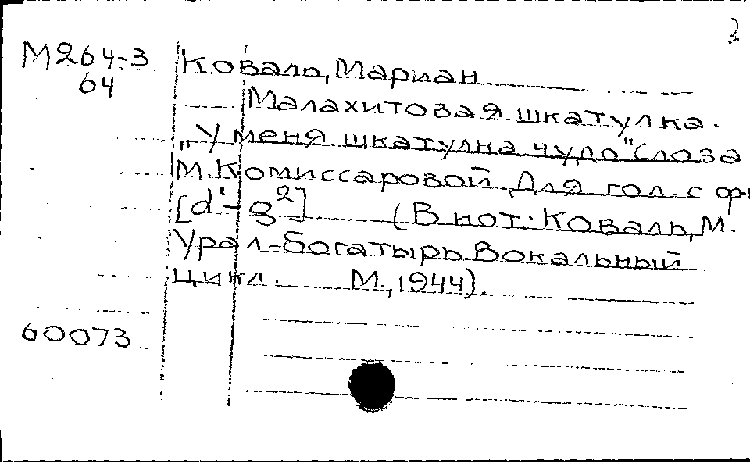 3
М264-3 Коваль, Мариан
64 Малахитовая шкатулка.
„У меня шкатулка чудо" слова
М. Комиссаровой. Для гол. с фп
[d¹-g²] (В нот: Коваль, М.
Урал-богатырь Вокальный
цикл. М., 1944).
60073